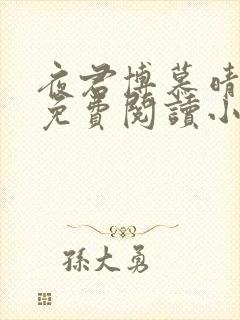 夜君博慕晴
免費閱讀小
孫大勇